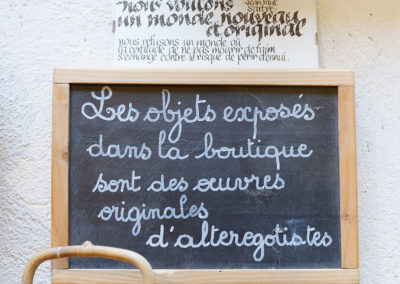 nous voulons
un monde nouveau
et original
Jean Paul
Sartre
nous refusons un monde où
la certitude de ne pas mourir de faim
s'échange contre le risque de périr d'ennui.
Les objets exposés
dans la boutique
sont des œuvres
originales
d'alteregotistes